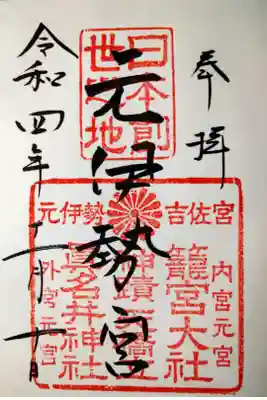 奉拝
日本創
世之地
元伊勢宮
令和四年十一月十日
元伊勢 吉佐宮
内宮元宮
籠宮大社
神蹟
眞名井神社
外宮元宮